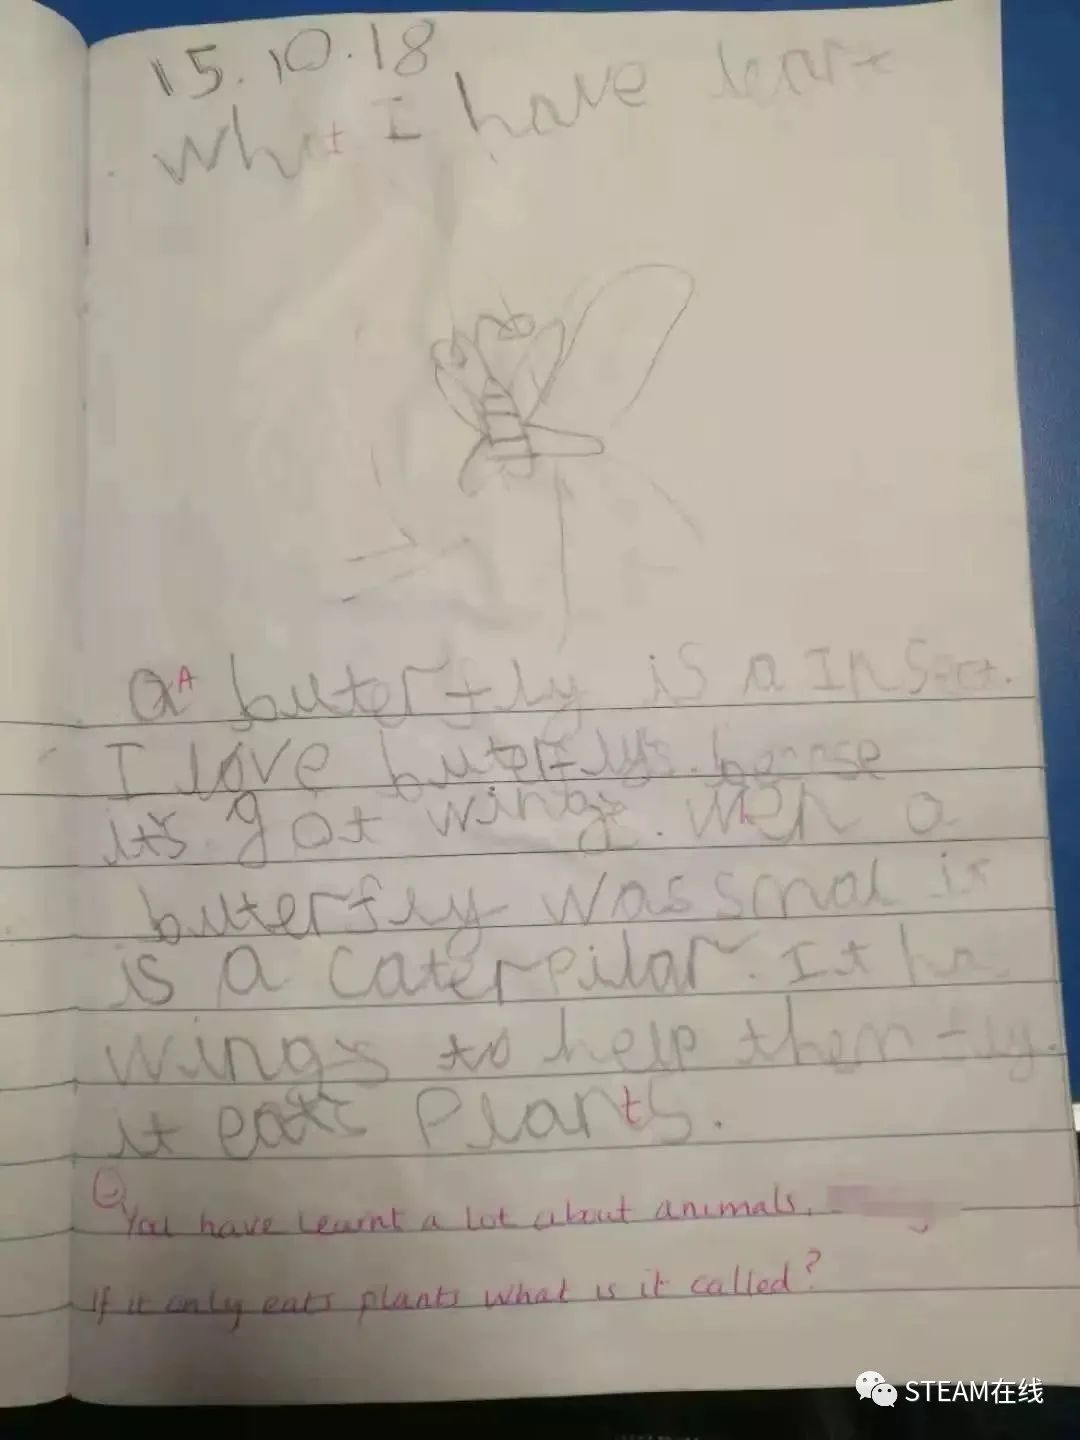 15.10.18
What I have learnt
A buterfly is a Insect.
I love buterflys.
its got wings. when a
buterfly was smal it
is a caterpilar. It ha
wings to help them fly.
it eats Plants.
You have learnt a lot about animals,
If it only eats plants what is it called?
STEAM在线